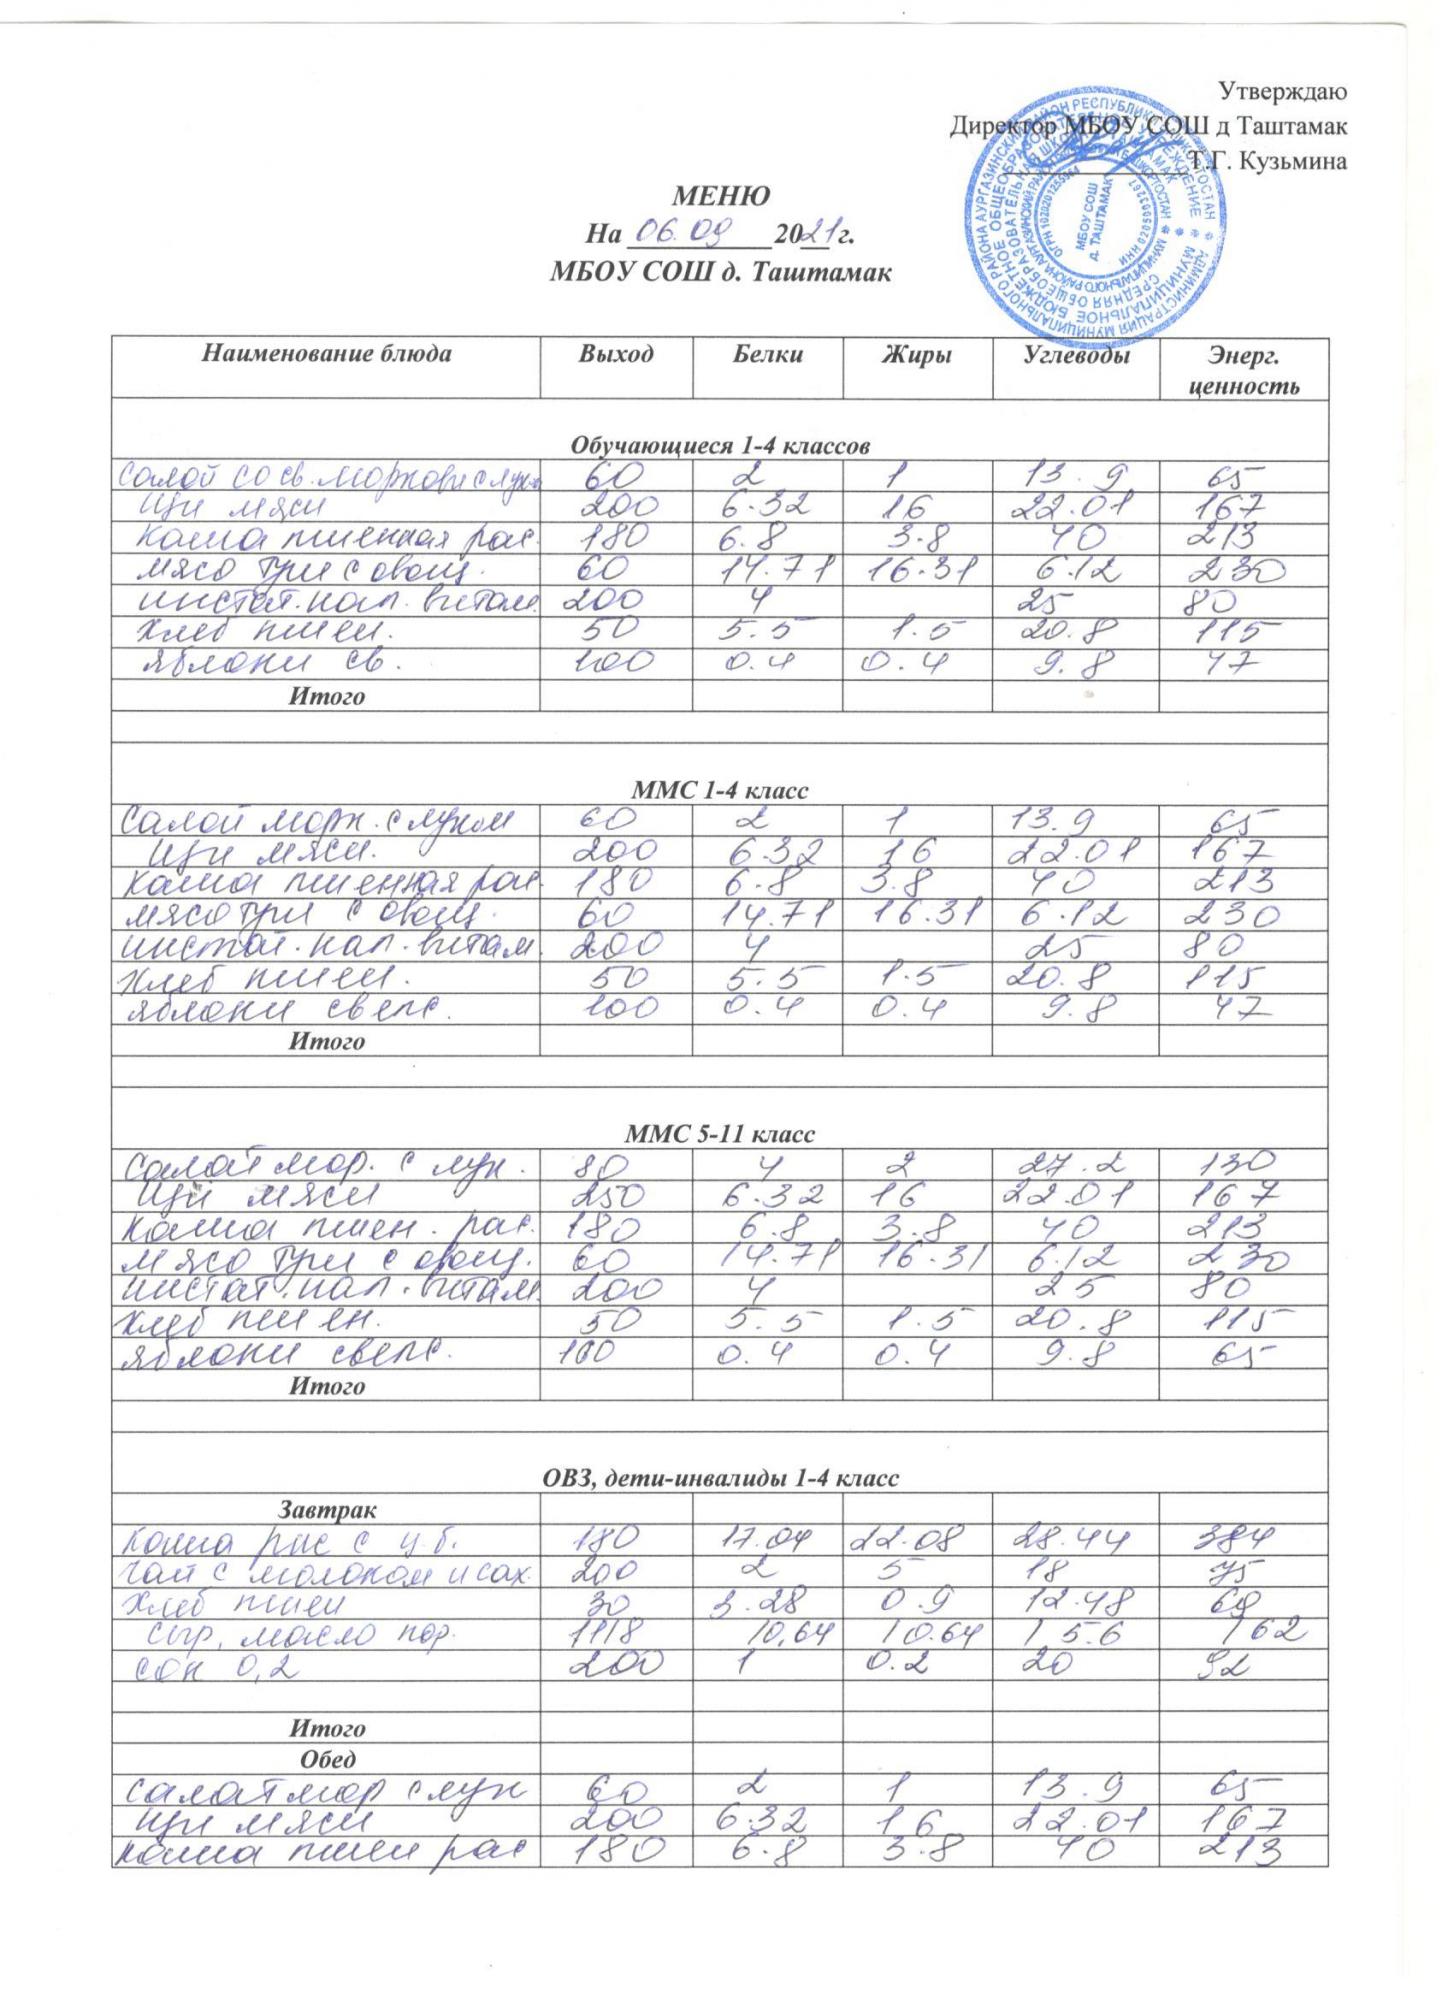 Утверждаю
Директор МБОУ СОШ д Таштамак
Т.Г. Кузьмина
МЕНЮ
На 06.09 2021 г.
МБОУ СОШ д. Таштамак
Наименование блюда Выход Белки Жиры Углеводы Энерг. ценность
Обучающиеся 1-4 классов
салат со св. моркови с лук 60 2 1 13.9 65
щи мясн 200 6.32 16 22.01 167
каша пшенная рас. 180 6.8 3.8 40 213
мясо туш с овощ. 60 14.71 16.31 6.12 230
инстат. нап. витам. 200 4 25 80
хлеб пшен. 50 5.5 1.5 20.8 115
яблоки св. 100 0.4 0.4 9.8 47
Итого
ММС 1-4 класс
салат морк. с луком 60 2 1 13.9 65
щи мясн. 200 6.32 16 22.01 167
каша пшенная рас. 180 6.8 3.8 40 213
мясо туш с овощ. 60 14.71 16.31 6.12 230
инстат. нап. витам. 200 4 25 80
хлеб пшен. 50 5.5 1.5 20.8 115
яблоки свеж. 100 0.4 0.4 9.8 47
Итого
ММС 5-11 класс
салат мор. с лук. 80 4 2 27.2 130
щи мясн 250 6.32 16 22.01 167
каша пшен. рас. 180 6.8 3.8 40 213
мясо туш с овощ. 60 14.71 16.31 6.12 230
инстат. нап. витам. 200 4 25 80
хлеб пшен. 50 5.5 1.5 20.8 115
яблоки свеж. 100 0.4 0.4 9.8 65
Итого
ОВЗ, дети-инвалиды 1-4 класс
Завтрак
каша рис с 180 17.04 22.08 28.44 384
чай с молоком и сах. 200 2 5 18 75
хлеб пшен 30 3.28 0.9 12.48 69
сыр, масло пор. 1118 10,64 10.64 15.6 162
сок 0,2 200 1 0.2 20 92
Итого
Обед
салат мор с лук 60 2 1 13.9 65
щи мясн 200 6.32 16 22.01 167
каша пшен рас 180 6.8 3.8 40 213
МБОУ СОШ
д. ТАШТАМАК